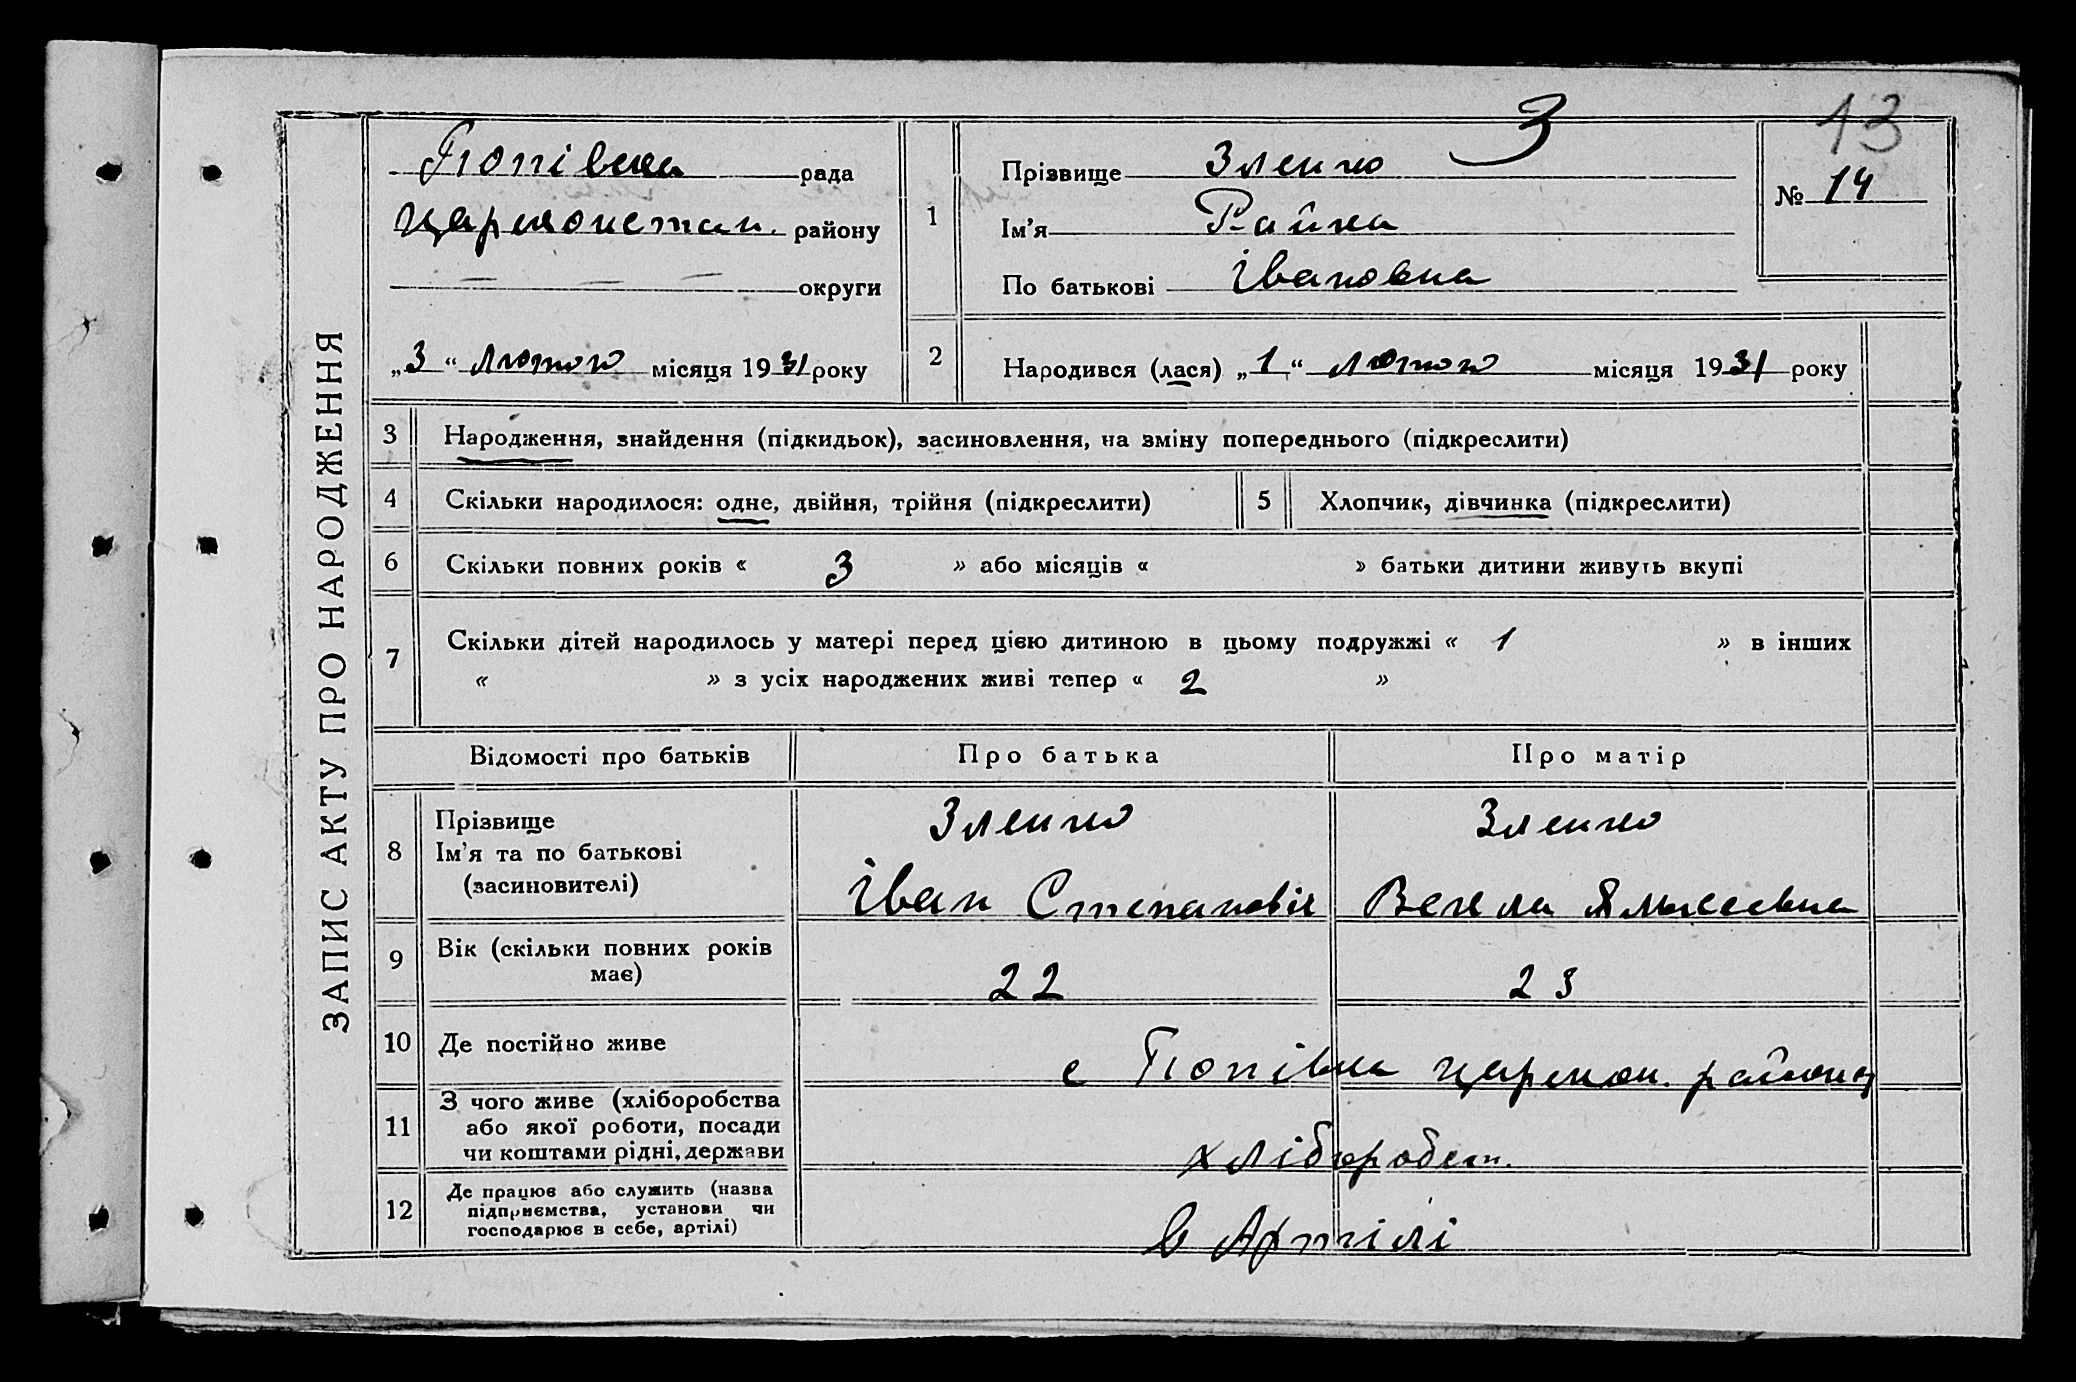 13
З
ЗАПИС АКТУ ПРО НАРОДЖЕННЯ
Попівська рада
Царичонськ. району
— — — округи
„3“ лютого місяця 1931 року
1
Прізвище Зленко
Ім’я Раїна
По батькові Івановна
№ 14
2
Народився (лася) „1“ лютого місяця 1931 року
3 Народження, знайдення (підкидьок), засиновлення, на зміну попереднього (підкреслити)
4 Скільки народилося: одне, двійня, трійня (підкреслити)
5 Хлопчик, дівчинка (підкреслити)
6 Скільки повних років « 3 » або місяців « » батьки дитини живуть вкупі
7 Скільки дітей народилось у матері перед цією дитиною в цьому подружжі « 1 » в інших
« » з усіх народжених живі тепер « 2 »
Відомості про батьків Про батька Про матір
8 Прізвище
Ім’я та по батькові
(засиновителі)
Зленко
Іван Степановіч
Зленко
Векла
9 Вік (скільки повних років
має)
22 23
10 Де постійно живе
с Попівка царичон. району
11 З чого живе (хліборобства
або якої роботи, посади
чи коштами рідні, держави
хлібороб
12 Де працює або служить (назва
підприємства, установи чи
господарює в себе, артілі)
в Артілі